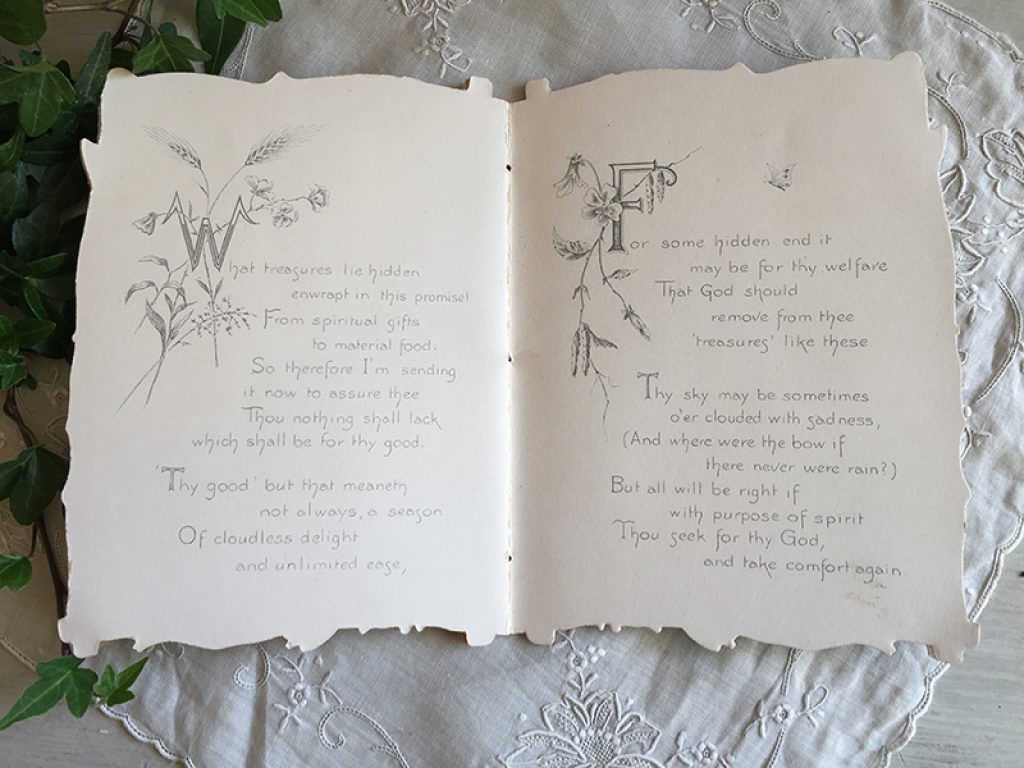 What treasures lie hidden
enwrapt in this promise!
From spiritual gifts
to material food:
So therefore I'm sending
it now to assure thee
Thou nothing shall lack,
which shall be for thy good.
'Thy good' but that meaneth
not always, a season
Of cloudless delight
and unlimited ease,
For some hidden end it
may be for thy welfare
That God should
remove from thee
'treasures' like these.
Thy sky may be sometimes
o'er clouded with sadness,
(And where were the bow if
there never were rain?)
But all will be right if
with purpose of spirit
Thou seek for thy God,
and take comfort again.